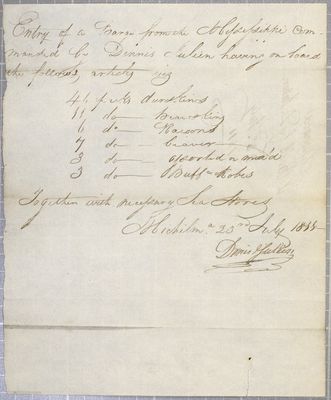 Entry of a Barge from the Missisippi Com-
manded by Dennis Julien having on board
the following articles viz
41 packs deerskins
11 do — Bearskins
6 do — Racoons
7 do — beaver
3 do — assorted
3 do — Buff. Robes
Together with necessary Sea Stores
Michilm.ª 23rd July
Dennis Jullien